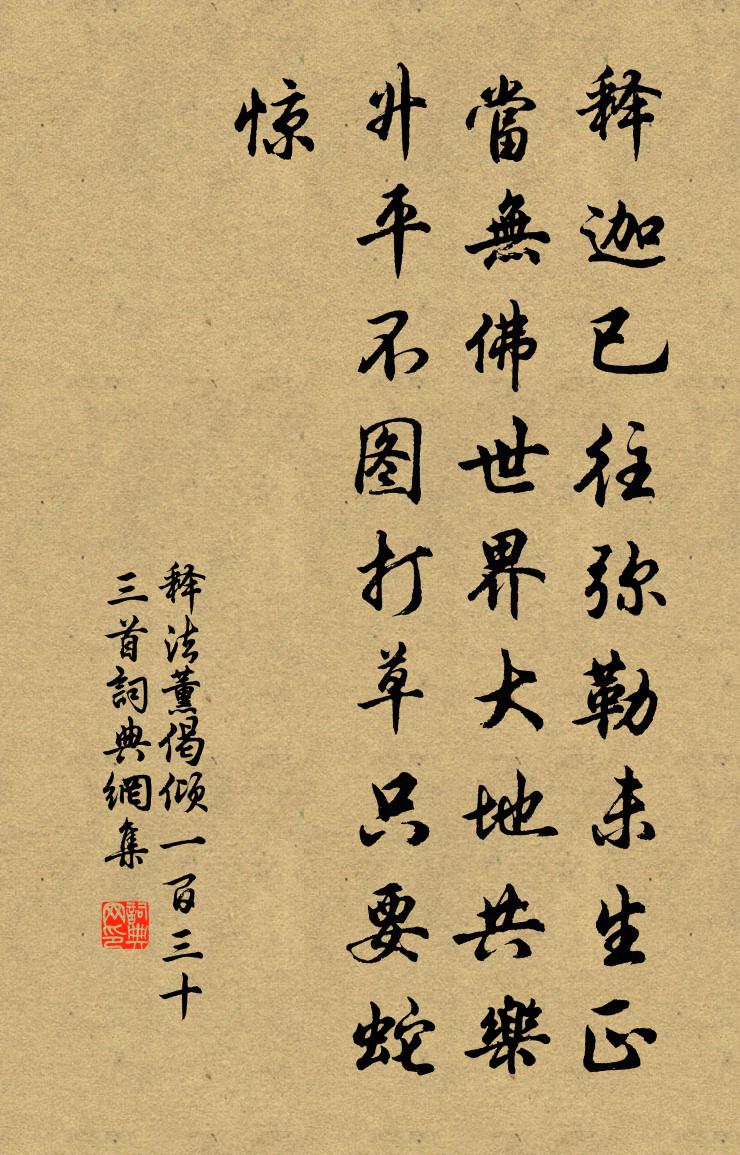 释迦已往弥勒未生正
當無佛世界大地共樂
升平不图打草只要蛇
惊
释法薰偈倾一百三十
三首詞典網集
詞典
网印